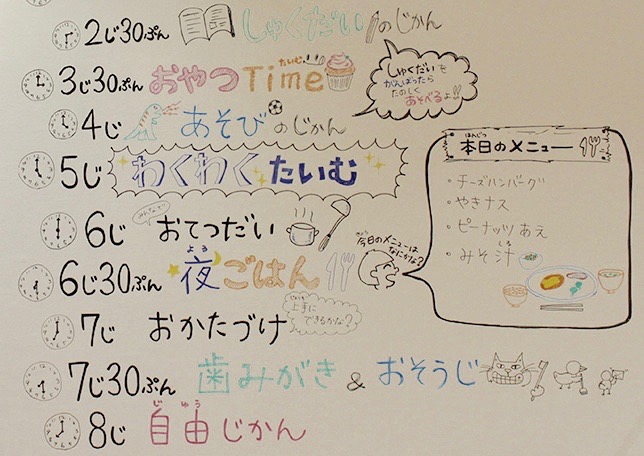 2じ30ぷん しゅくだいのじかん
3じ30ぷん おやつTime
たいむ
しゅくだいも
がんばったら
たのしく
あそべるよ!!
4じ あそびのじかん
5じ わくわくたいむ
6じ みんなで おてつだい
6じ30ぷん 夜ごはん
よる
7じ おかたづけ
上手に
できるかな?
7じ30ぷん 歯みがき & おそうじ
8じ 自由じかん
じゆう
今日のメニューは
なにかな?
本日のメニュー
ほんじつ
・チーズハンバーグ
・やきナス
・ピーナッツあえ
・みそ汁
しる